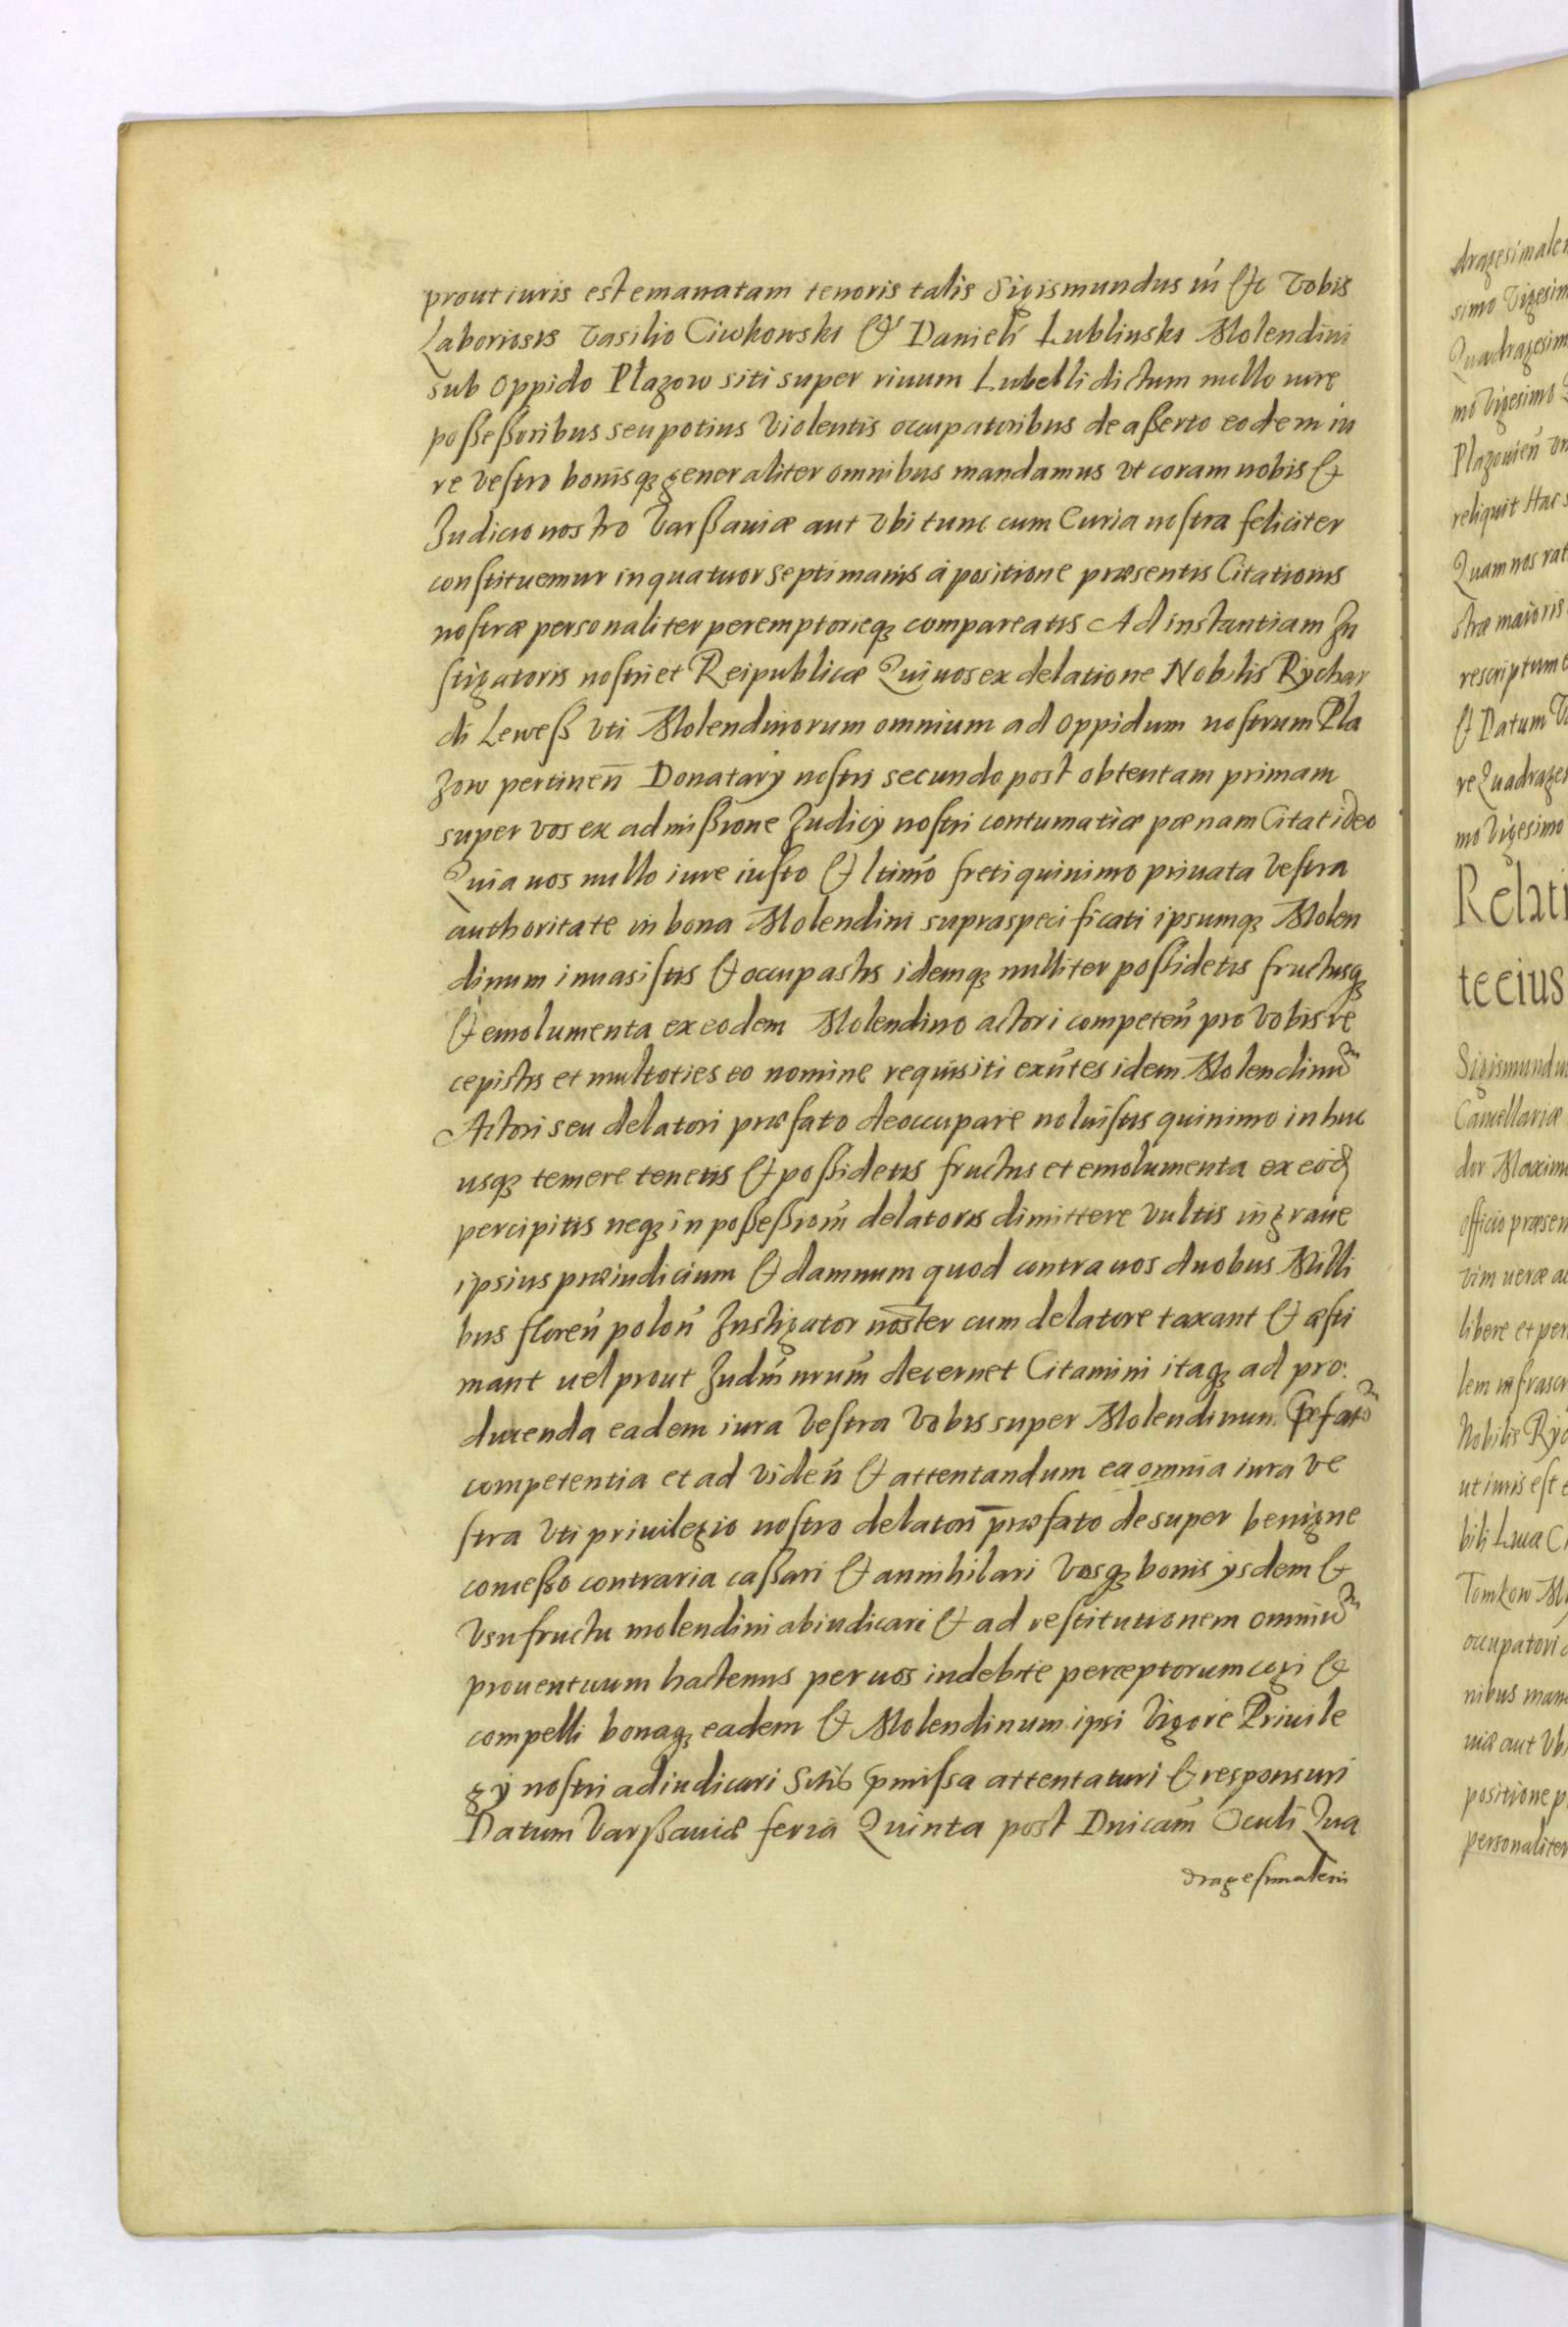 prout iuris est emanatam tenoris talis Sigismundus iii Etc Vobis
Laboriosis Vasilio Ciwkowski Et Danieli Lublinski Molendini
sub oppido Plazow siti super riuum Lubelli dictum nullo iure
poßeßoribus seu potius Violentis occupatoribus de aßerto eodem iu
re Vestro bonisq generaliter omnibus mandamus vt coram nobis Et
Iudicio nostro Varßauiæ aut Vbi tunc cum Curia nostra feliciter
constituemur in quatuor Septimanis á positione præsentis Citationis
nostræ personaliter peremptorieq compareatis Ad instantiam In
stigatoris nostri et Reipublicæ Qui uos ex delatione Nobilis Rychar
di Leweß Vti Molendinorum omnium ad oppidum nostrum Pla
zow pertinen̄ Donatarÿ nostri secundo post obtentam primam
super vos ex admißione Iudicÿ nostri contumatiæ pœnam Citat ideo
Quia uos nullo iure iusto Et ltimo freti quinimo priuata Vestra
authoritate in bona Molendini supraspecificati ipsumq Molen
dinum inuasistis Et occupastis idemq nulliter poßidetis fructusq
Et emolumenta ex eodem Molendino actori competen̄ pro Vobis re
cepistis et multoties eo nomine requisiti exn̄tes idem Molendinū
Actori seu delatori præfato deoccupare noluistis quinimo in huc
usq temere tenetis Et poßidetis fructus et emolumenta ex eod
percipitis neq in poßeßion̄ delatoris dimittere Vultis in graue
ipsius præiudicium Et damnum quod contra uos duobus Milli
bus floren̄ polon̄ Instigator noster cum delatore taxant Et æsti
mant uel prout Iudm̄ nrum̄ decernet Citamini itaq ad pro:
ducenda eadem iura Vestra Vobis super Molendinum p̄fatū
competentia et ad Viden̄ Et attentandum ea omnia iura Ve
stra Vti priuilegio nostro delatori præfato desuper benigne
conceßo contraria caßari Et annihilari Vosq bonis ÿsdem Et
Vsufructu molendini abiudicari Et ad restitutionem omniū
prouentuum hactenus per uos indebite perceptorum cogi Et
compelli bonaq eadem Et Molendinum ipsi Vigore Priuile
gÿ nostri adiudicari Sitis p̄missa attentaturi Et responsuri
Datum Varßauiæ feria Quinta post Dnicam̄ Oculi Qua
dragesimalem